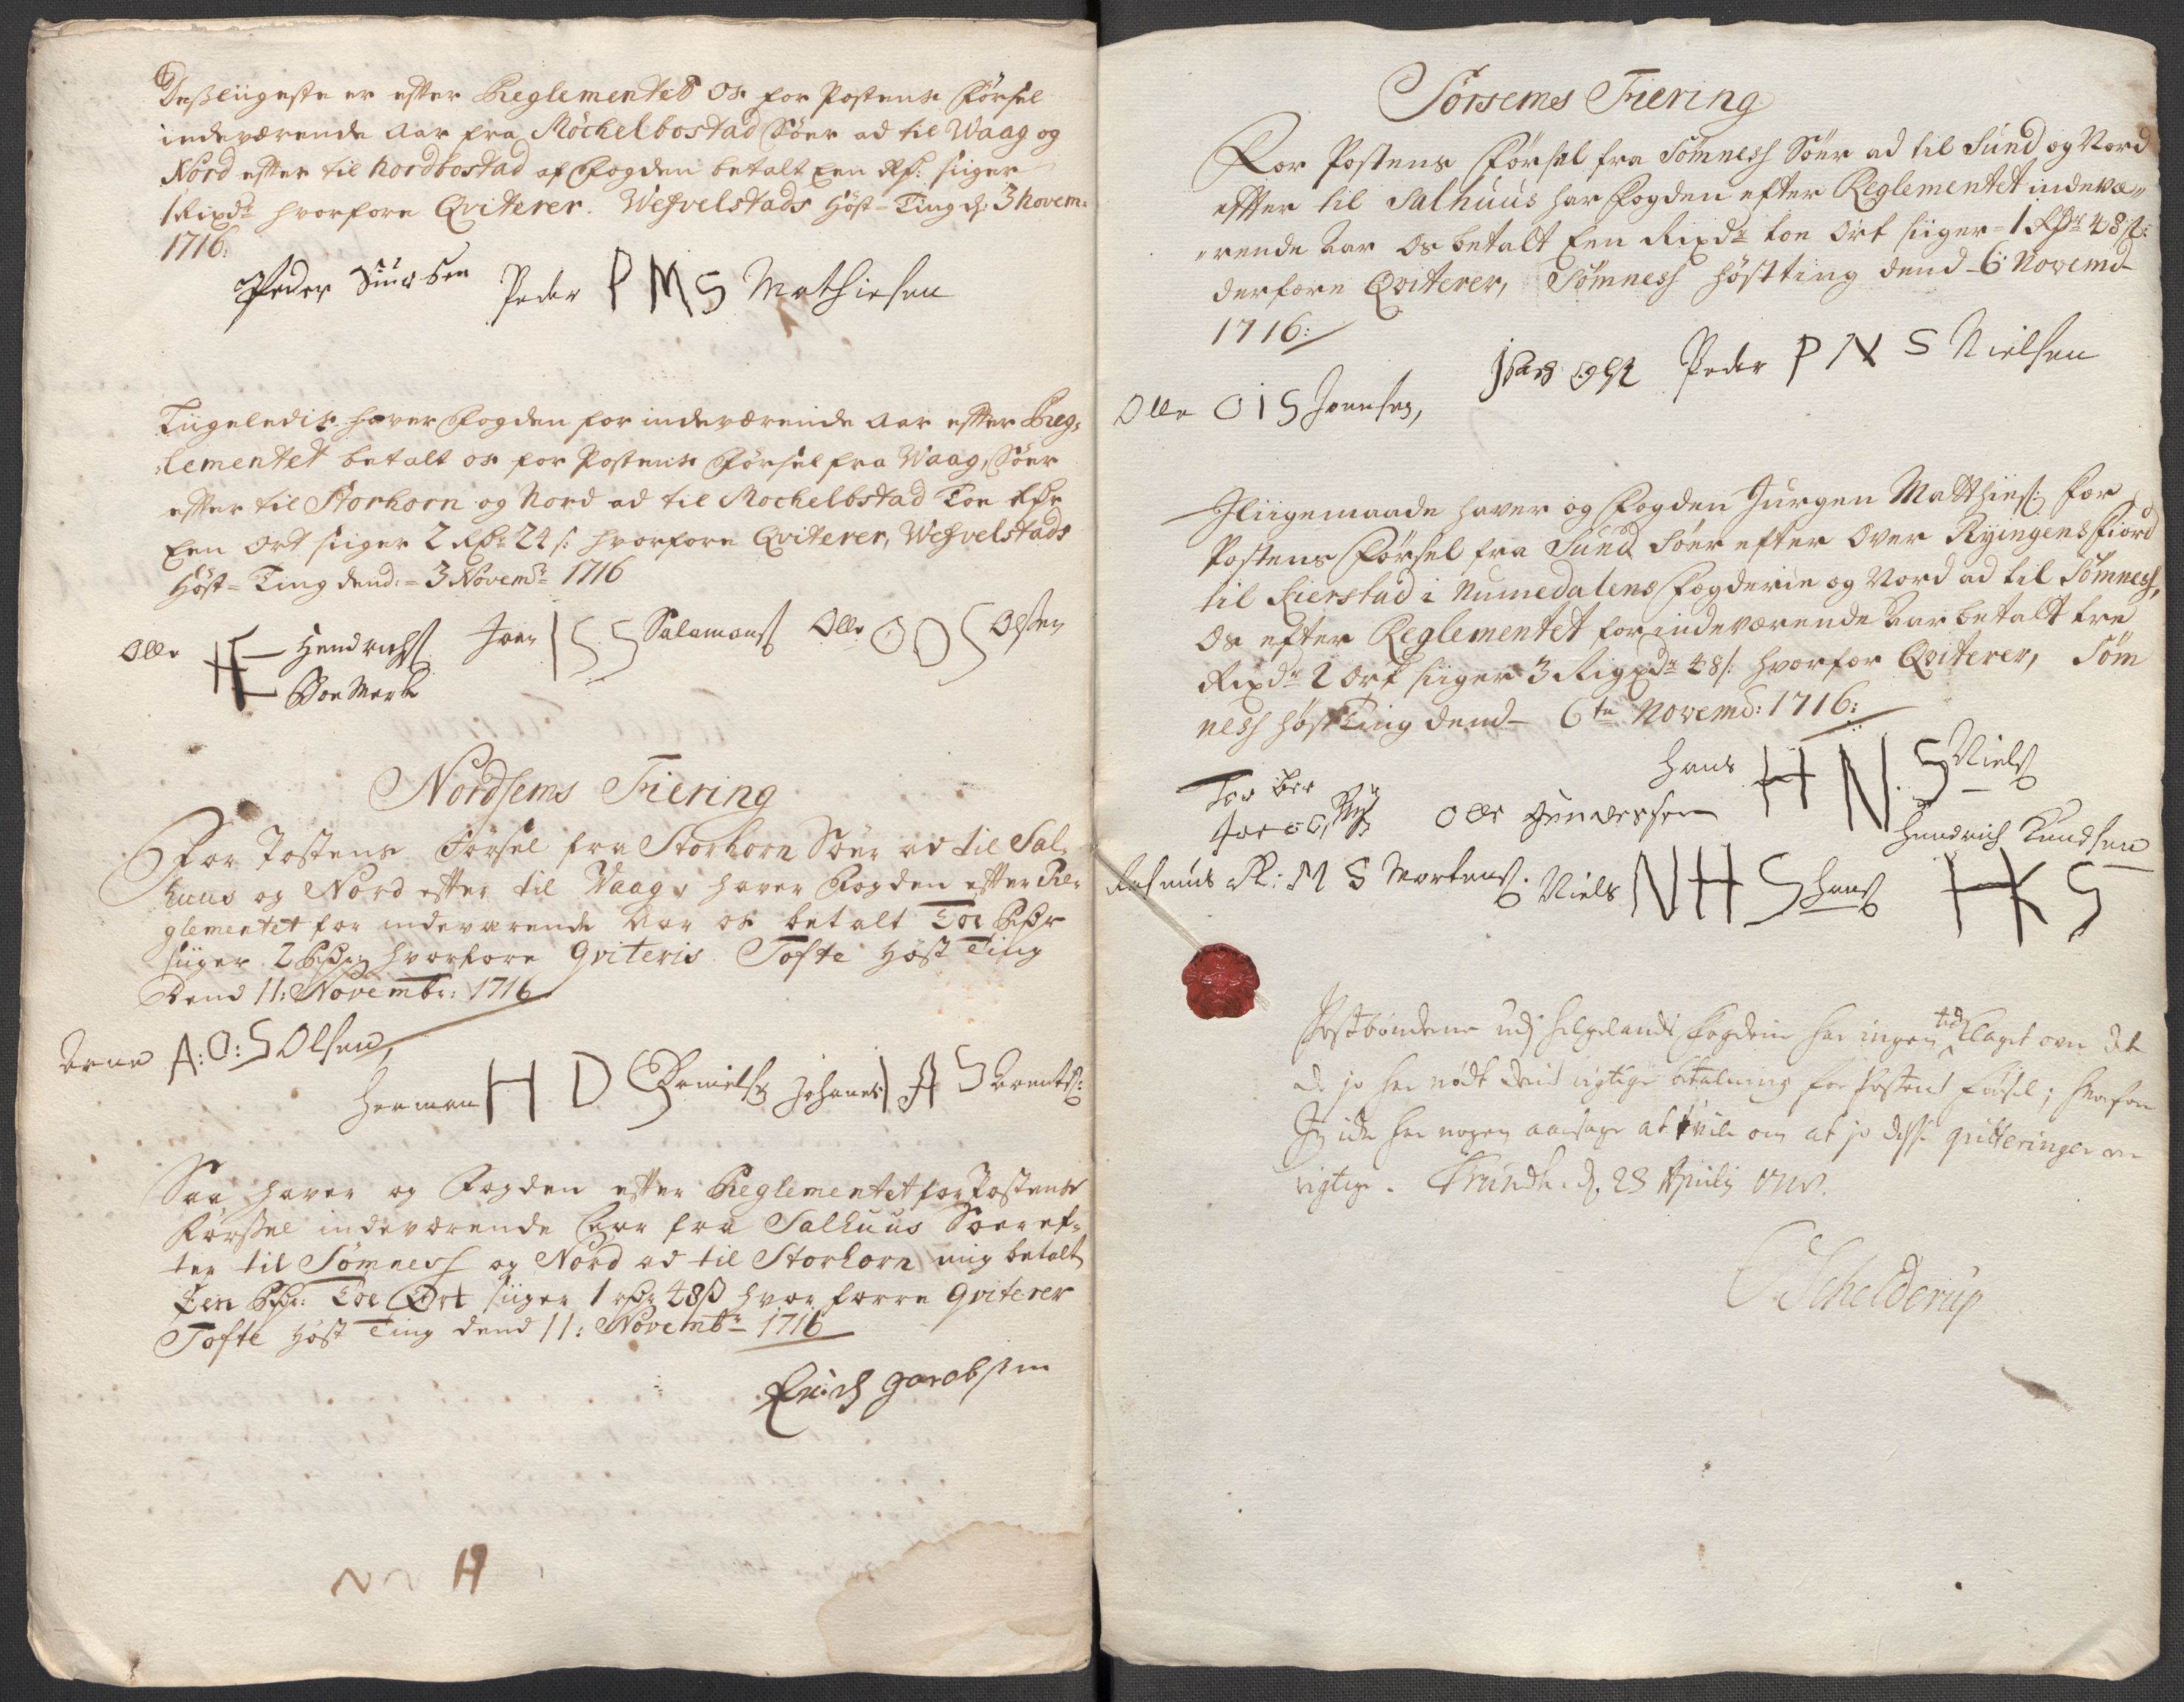 Desliigeste er efter Reglementet os for Postens Førsel
indeværende Aar fra Møchelbostad Søer ad til Waag og
Nord efter til Nordbostad af Fogden betalt Een Rd: siiger
1 Rixdr hvorfore Qviterer. Wefvelstads Höst-Ting d: 3 Novem:
1716:
Peder Siursen Peder P M S Mathiesen
Liigeledis hafver Fogden for indeværende Aar efter Reg-
lementet betalt os for Postens Førsel fra Waag, Søer
efter til Storhorn og Nord ad til Mochelbstad Toe Rdr
Een Ort siiger 2 Rdr 24 s: hvorfore Qviterer, Wefvelstads
Höst-Ting dend:= 3 Novembr 1716
Olle H Hendrichs Joen I S S Salamons Olle O O S Olsen
Boe Merke
Nordsems Fiering
For Postens Førsel fra Storhorn Søer ad til Sal-
huus og Nord efter til Vaag, haver Fogden efter Re-
glementet for indeværende Aar os betalt Toe Rdr
siiger 2 Rdr hvorfore Qviteris Tofte Höst Ting
Dend 11: Novembr: 1716
Arne A: O: S Olsen,
Herman H D S Danielsen Johanes I A S Arents:
Saa haver og Fogden efter Reglementet for Postens
Førssel indeværende Aar fra Salhuus Søer ef-
ter til Sømness og Nord ad til Storhorn mig betalt
Een Rdr: Toe Ort siiger 1 Rdr 48 ß hvor forre Qviterer
Tofte Höst Ting dend 11: Novembr 1716
Erich Jacobsen
H
Sørsems Fiering
For Postens Førsel fra Sømness Søer ad til Sund og Nord
efter til Salhuus har Fogden efter Reglementet indevæ-
rende Aar os betalt Een Rixdr toe Ort siiger = 1 Rdr 48 s:
derfore Qviterer, Sømness Høstting dend 6 Novemb
1716:
Peder P N S Nielsen
Olle O I S Joensen,
Iliigemaade haver og Fogden Jürgen Matthies: for
Postens Førsel fra Sund Søer efter Over Ryingens Fiord
til Fierstad i Numedalens Fogderie og Nord ad til Sømness,
Os efter Reglementet for indeværende Aar betalt tre
Rixdr 2 Ort siiger 3 Rixdr 48 s: hvorfor Qviterer, Søm
ness Høst Ting dend 6te Novemb: 1716:
Hans H N. S Niels
Olle Gundersen
Hendrich Knudsen
Rasmus R: M S Mortens. Niels N H S Hans H K S
Postbønderne udj Helgelands Fogderie har ingen tid klaget over det
de jo har nødt deris rigtige betalning for Postens Førsel; hvorfore
Jeg icke har nogen aarsage at tvile om at jo disse qvitteringer er
rigtige. Trundh. d. 23 Aprilis 1718.
Schelderup